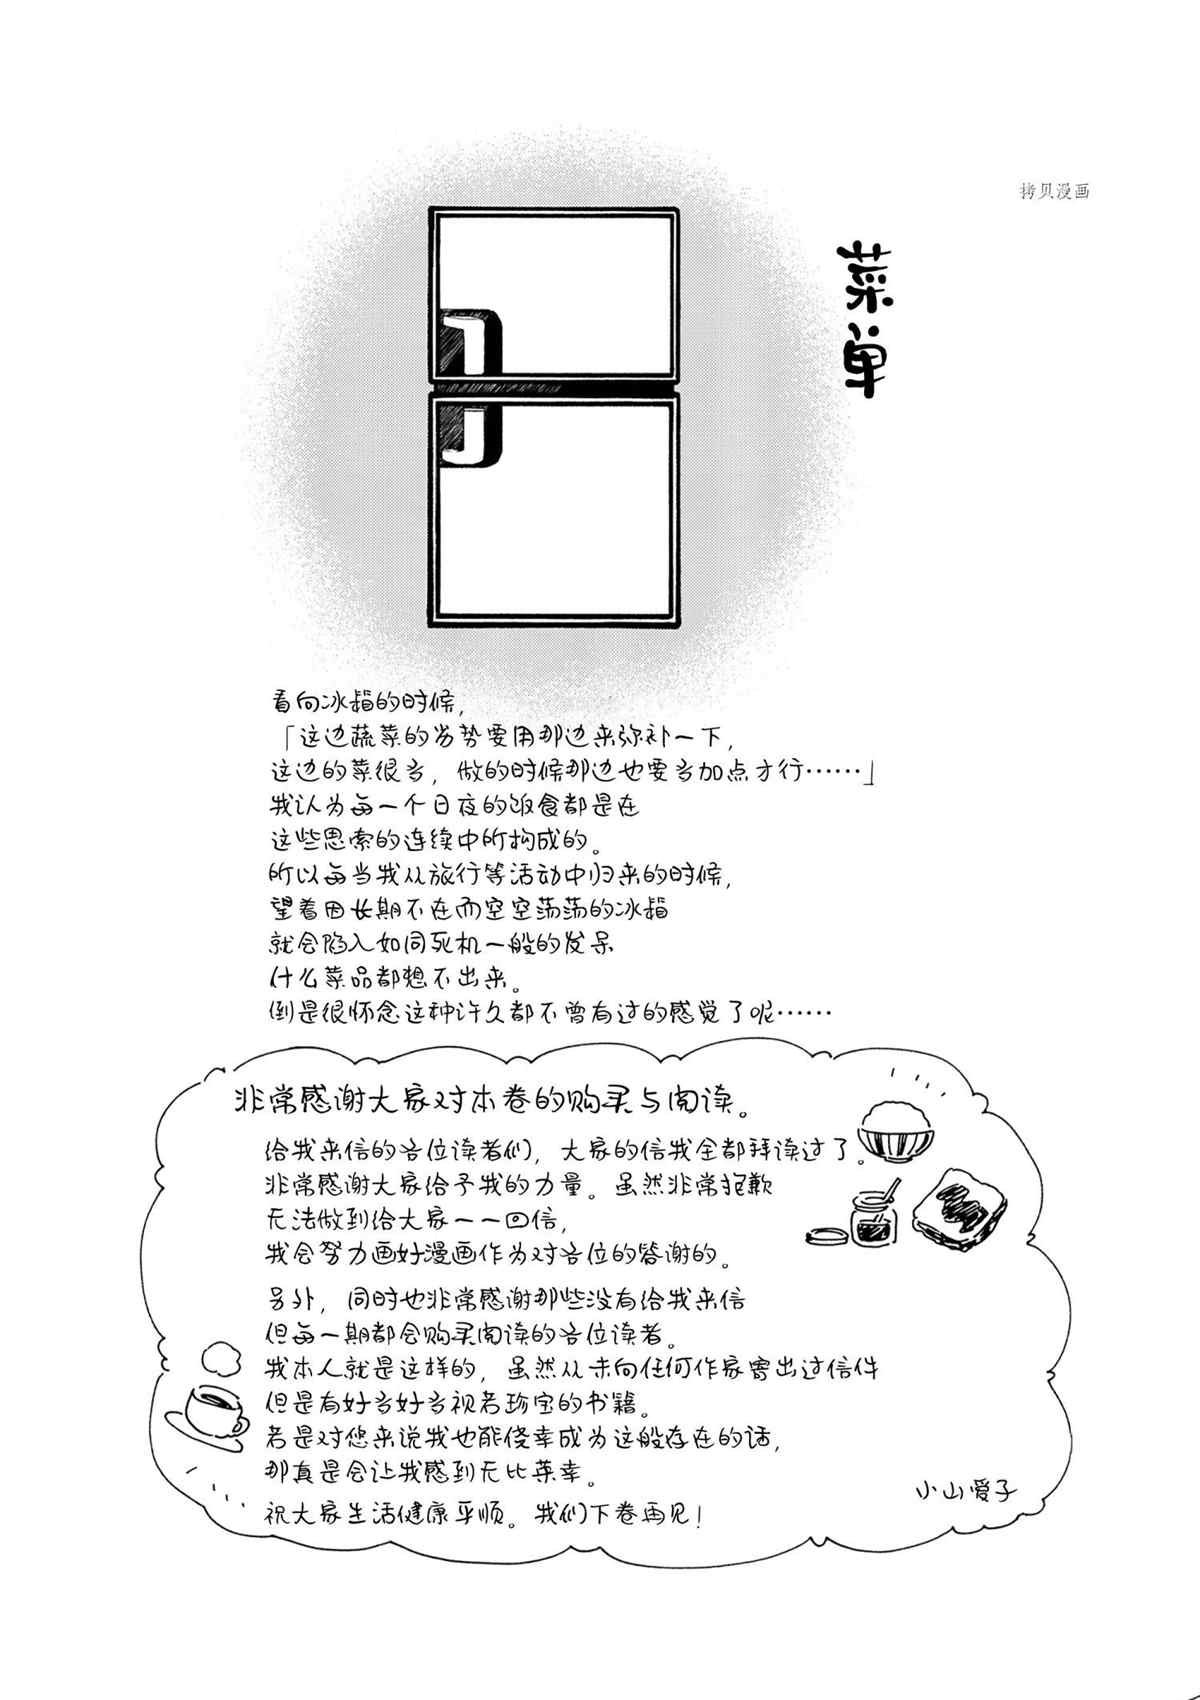 拷贝漫画
菜单
看向冰箱的时候，
「这边蔬菜的劣势要用那边来弥补一下，
这边的菜很多，做的时候那边也要多加点才行……」
我认为每一个日夜的饭食都是在
这些思索的连续中所构成的。
所以每当我从旅行等活动中归来的时候，
望着因长期不在而空空荡荡的冰箱
就会陷入如同死机一般的发呆
什么菜品都想不出来。
倒是很怀念这种许久都不曾有过的感觉了呢……
非常感谢大家对本卷的购买与阅读。
给我来信的各位读者们，大家的信我全都拜读过了。
非常感谢大家给予我的力量。虽然非常抱歉
无法做到给大家一一回信，
我会努力画好漫画作为对各位的答谢的。
另外，同时也非常感谢那些没有给我来信
但每一期都会购买阅读的各位读者。
我本人就是这样的，虽然从未向任何作家寄出过信件
但是有好多好多视若珍宝的书籍。
若是对您来说我也能侥幸成为这般存在的话，
那真是会让我感到无比荣幸。
祝大家生活健康平顺。我们下卷再见！
小山爱子